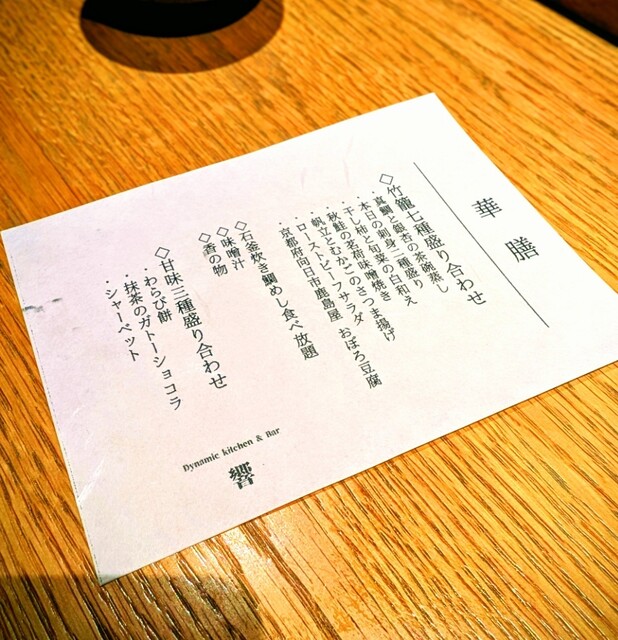 華膳
◇竹籠七種盛り合わせ
・真鯛と銀杏の茶碗蒸し
・本日の刺身二種盛り
・干し柿と旬菜の白和え
・秋鮭の茗荷味噌焼き
・帆立とむかごのさつま揚げ
・ローストビーフサラダ
・京都府向日市鹿島屋 おぼろ豆腐
◇石釜炊き鯛めし食べ放題
◇味噌汁
◇香の物
◇甘味三種盛り合わせ
・わらび餅
・抹茶のガトーショコラ
・シャーベット
Dynamic kitchen & Bar
響